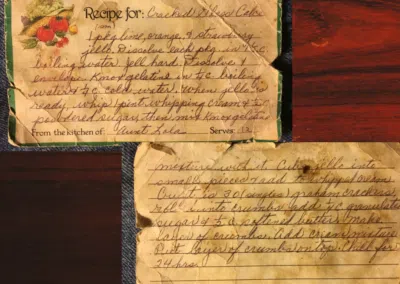 Recipe for: Cracked Glass Cake
1 pkg lime, orange, & strawberry
jello. Dissolve each pkg in 1 ½ C.
boiling water. Jell hard. Dissolve 1
envelope Knox gelatine in ½ C. boiling
water & ½ C. cold water. When jello is
ready whip 1 pint whipping cream & ½ C.
powdered sugar then mix Knox gelatine
From the kitchen of Aunt Lola Serves 12
mixture with it. Cube jello into
small pieces add to whipped cream
Crust is 30 (singles) graham crackers
roll into crumbs add ½ C granulated
sugar & ½ C softened butter. Make
layer of crumbs. Add cream mixture
Put layer of crumbs on top. Chill for
24 hrs.